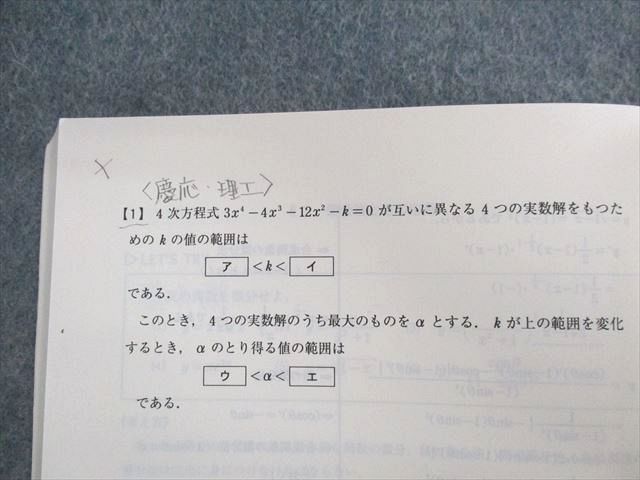 ×
〈慶応・理工〉
【1】 4次方程式 3x⁴－4x³－12x²－k＝0 が互いに異なる 4 つの実数解をもつた
めの k の値の範囲は
ア ＜k＜ イ
である．
このとき，4 つの実数解のうち最大のものを α とする．k が上の範囲を変化
するとき，α のとり得る値の範囲は
ウ ＜α＜ エ
である．